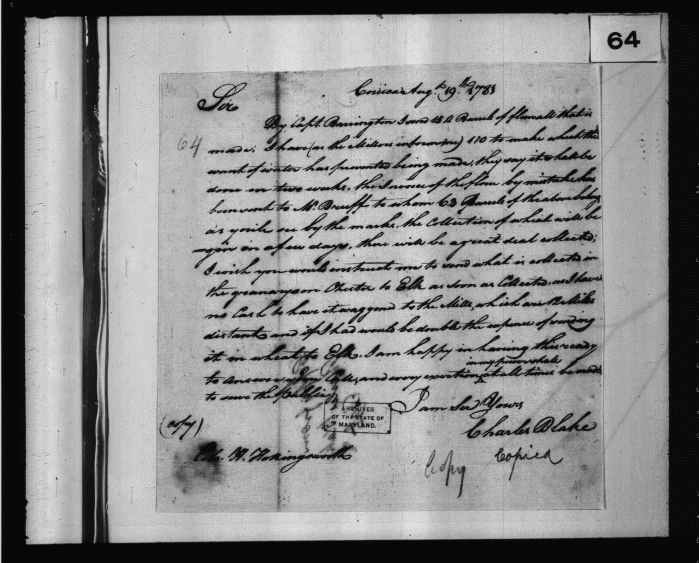 64
Corsica Augt. 19th 1781
Sir
By Capt. Barrington I send 154 Barrels of flour all that is
64
made; I have (as the Millers inform me) 110 to make which the
want of water has prevented being made, they say it shall be
done in two weeks. the Invoice of the flour by mistake has
been sent to Mr. Breuff to whom 63 Barrels of the above belong
as you'll see by the marks. the Collection of wheat will be
gin in a few days, there will be a great deal collected;
I wish you would instruct me to send what is collected in
the granarys on Chester to Elk as soon as Collected, as I have
no Cash to have it waggoned to the Mills, which are Miles
distant and if I had would be double the expence of sending
it in wheat to Elk. I am happy in having this ready
in my power shall
to Answer your Call, and every exertion at all times be made
to serve the Publick
I am Sir Yours
Charles Blake
(Copy)
ARCHIVES
OF THE STATE OF
MARYLAND.
Colo. H. Hollingsworth
Copy
Copied